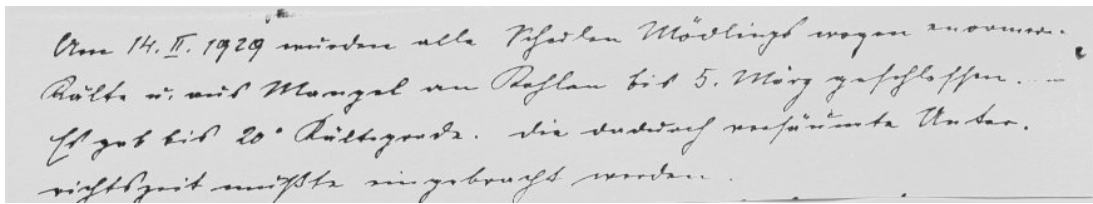 Am 14. II. 1929 wurden alle Schulen Mödlings wegen enormer
Kälte u. aus Mangel an Kohlen bis 5. März geschlossen.
Es gab bis 20° Kältegrade. Die dadurch versäumte Unter-
richtszeit mußte eingebracht werden.